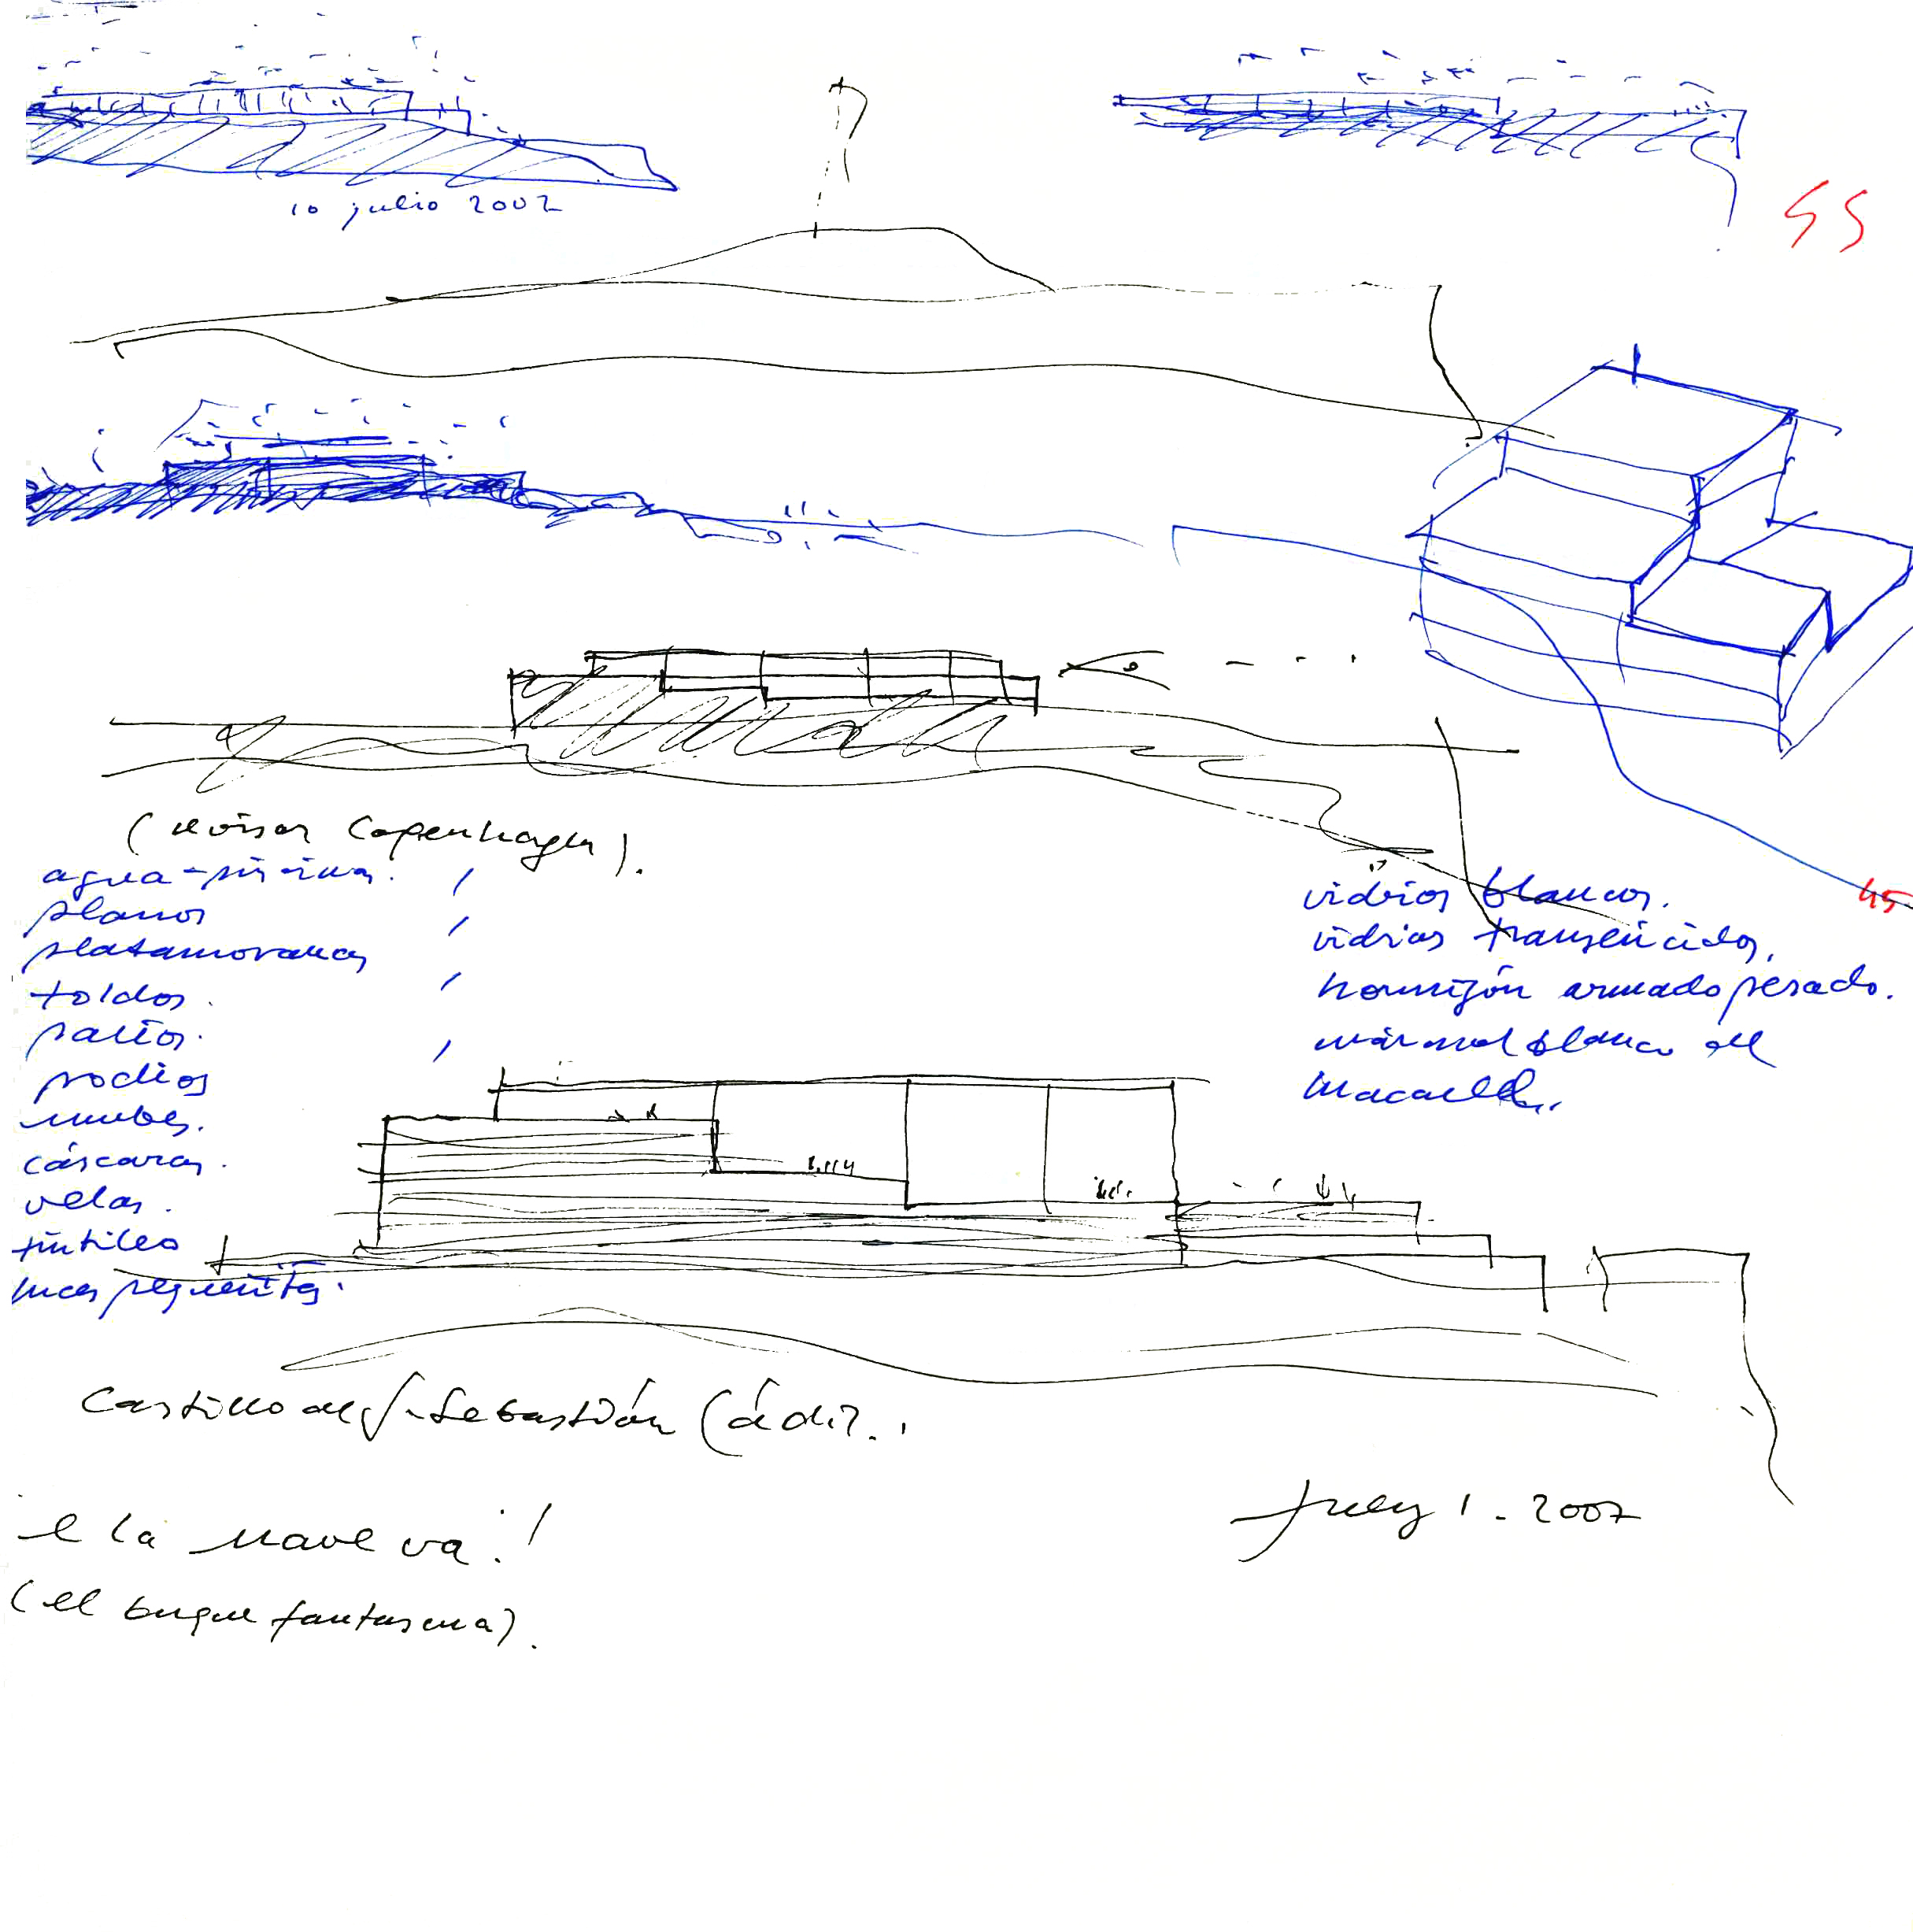 10 julio 2002
55
(revisar Copenhagen).
agua-piscina.
planos
plataformas
toldos.
patios.
podios
nubes.
cáscaras.
velas.
tintileo
luces pequeñitas.
vidrios blancos.
vidrios translúcidos.
hormigón armado pesado.
mármol blanco de
Macael.
45
Castillo de S. Sebastián Cádiz.
July 1 - 2007
e la nave va!
(el buque fantasma).